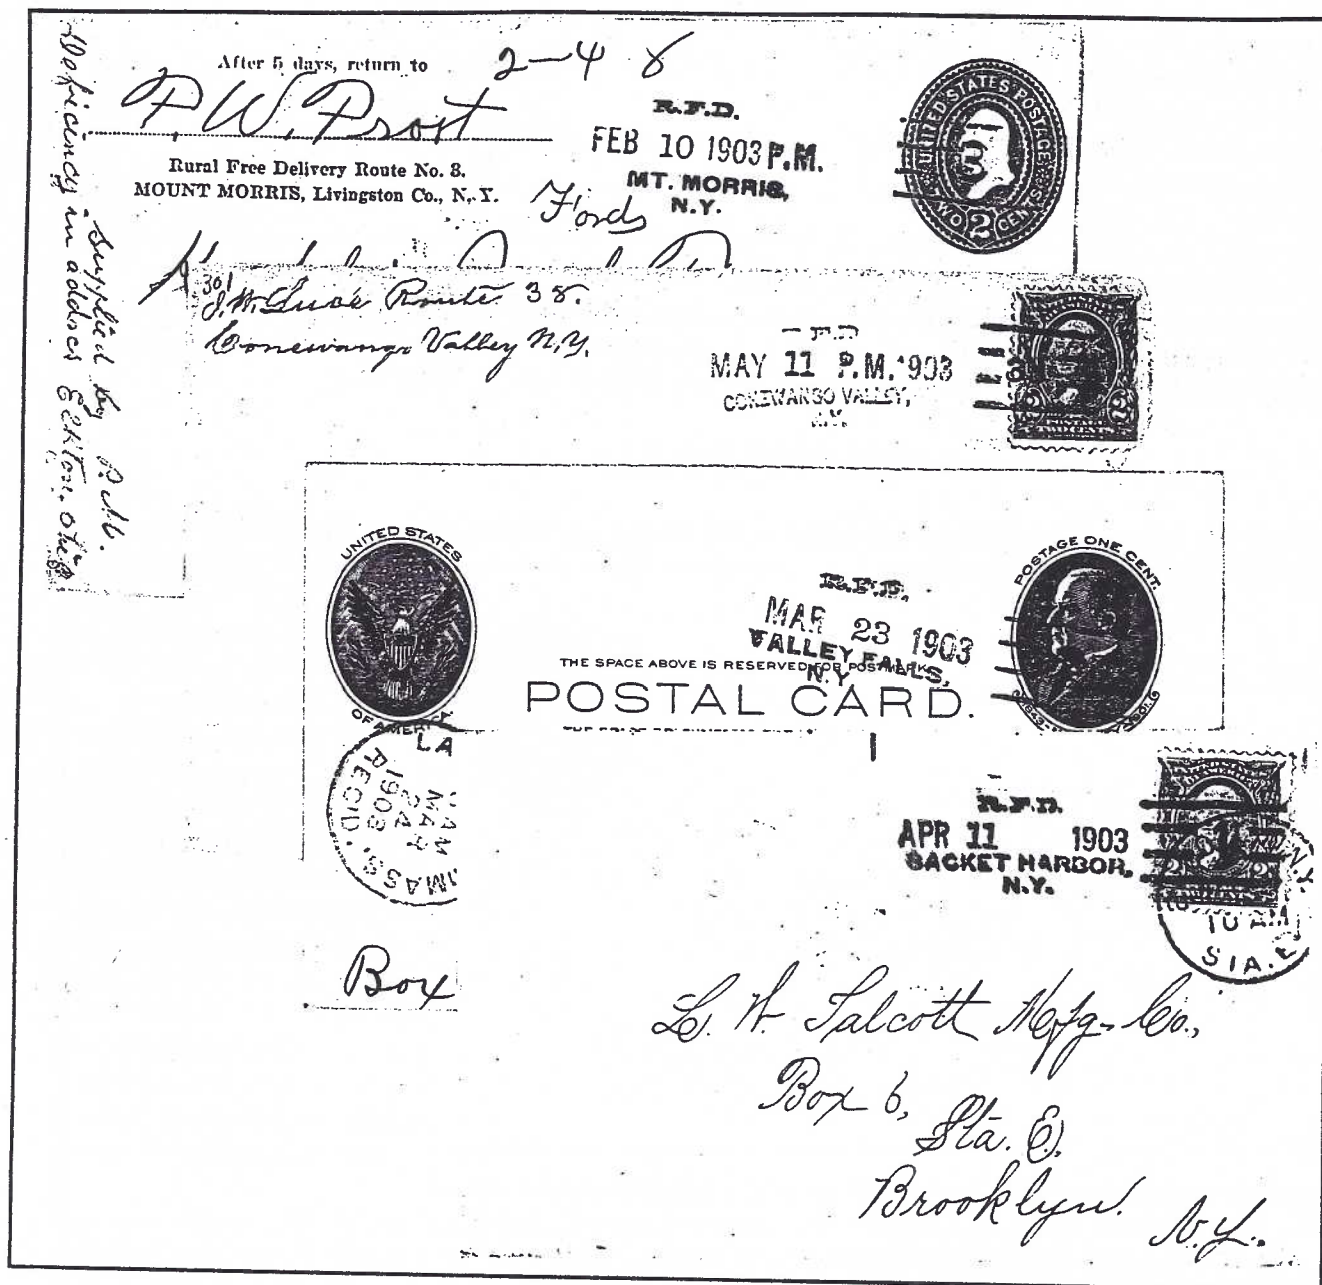 After 5 days, return to
2-4 8
P. W. Prost
Rural Free Delivery Route No. 3.
MOUNT MORRIS, Livingston Co., N. Y.
R.F.D.
FEB 10 1903 P.M.
MT. MORRIS,
N.Y.
UNITED STATES POSTAGE
TWO 2 CENTS
Fords
Deficiency in address
Supplied by P.M.
Route 38.
Conewango Valley N.Y.
MAY 11 P.M. 1903
CONEWANGO VALLEY,
N.Y.
UNITED STATES
OF AMERICA
R.F.D.
MAR 23 1903
VALLEY FALLS,
N.Y.
THE SPACE ABOVE IS RESERVED FOR POSTMARK
POSTAL CARD.
POSTAGE ONE CENT.
LA
AM
MAR
24
1903
MASS.
REC'D.
Box
R.F.D.
APR 11 1903
SACKET HARBOR,
N.Y.
N.Y.
10 AM
STA. E
L. W. Talcott Mfg. Co.,
Box 6,
Sta. E.
Brooklyn.
N.Y.